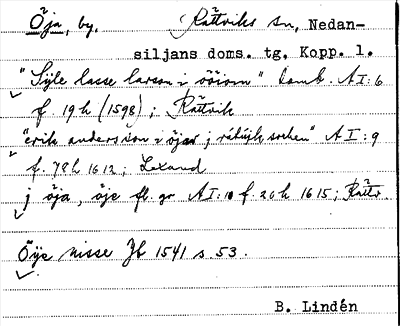 Öja, by. Rättviks sn, Nedan-
siljans doms. tg, Kopp. l.
"Syle lasse larson i ööiom" Domb. A I:6
f. 19 h (1598); Rättvik
"erik anderson i öjas j rätuik sochen" A I:9
f. 78 h 1612; Leksand
j öja, öje fl. gr A I:10 f. 26 h 1615; Rättv.
Öye nisse Jb 1541 s. 53.
B. Lindén